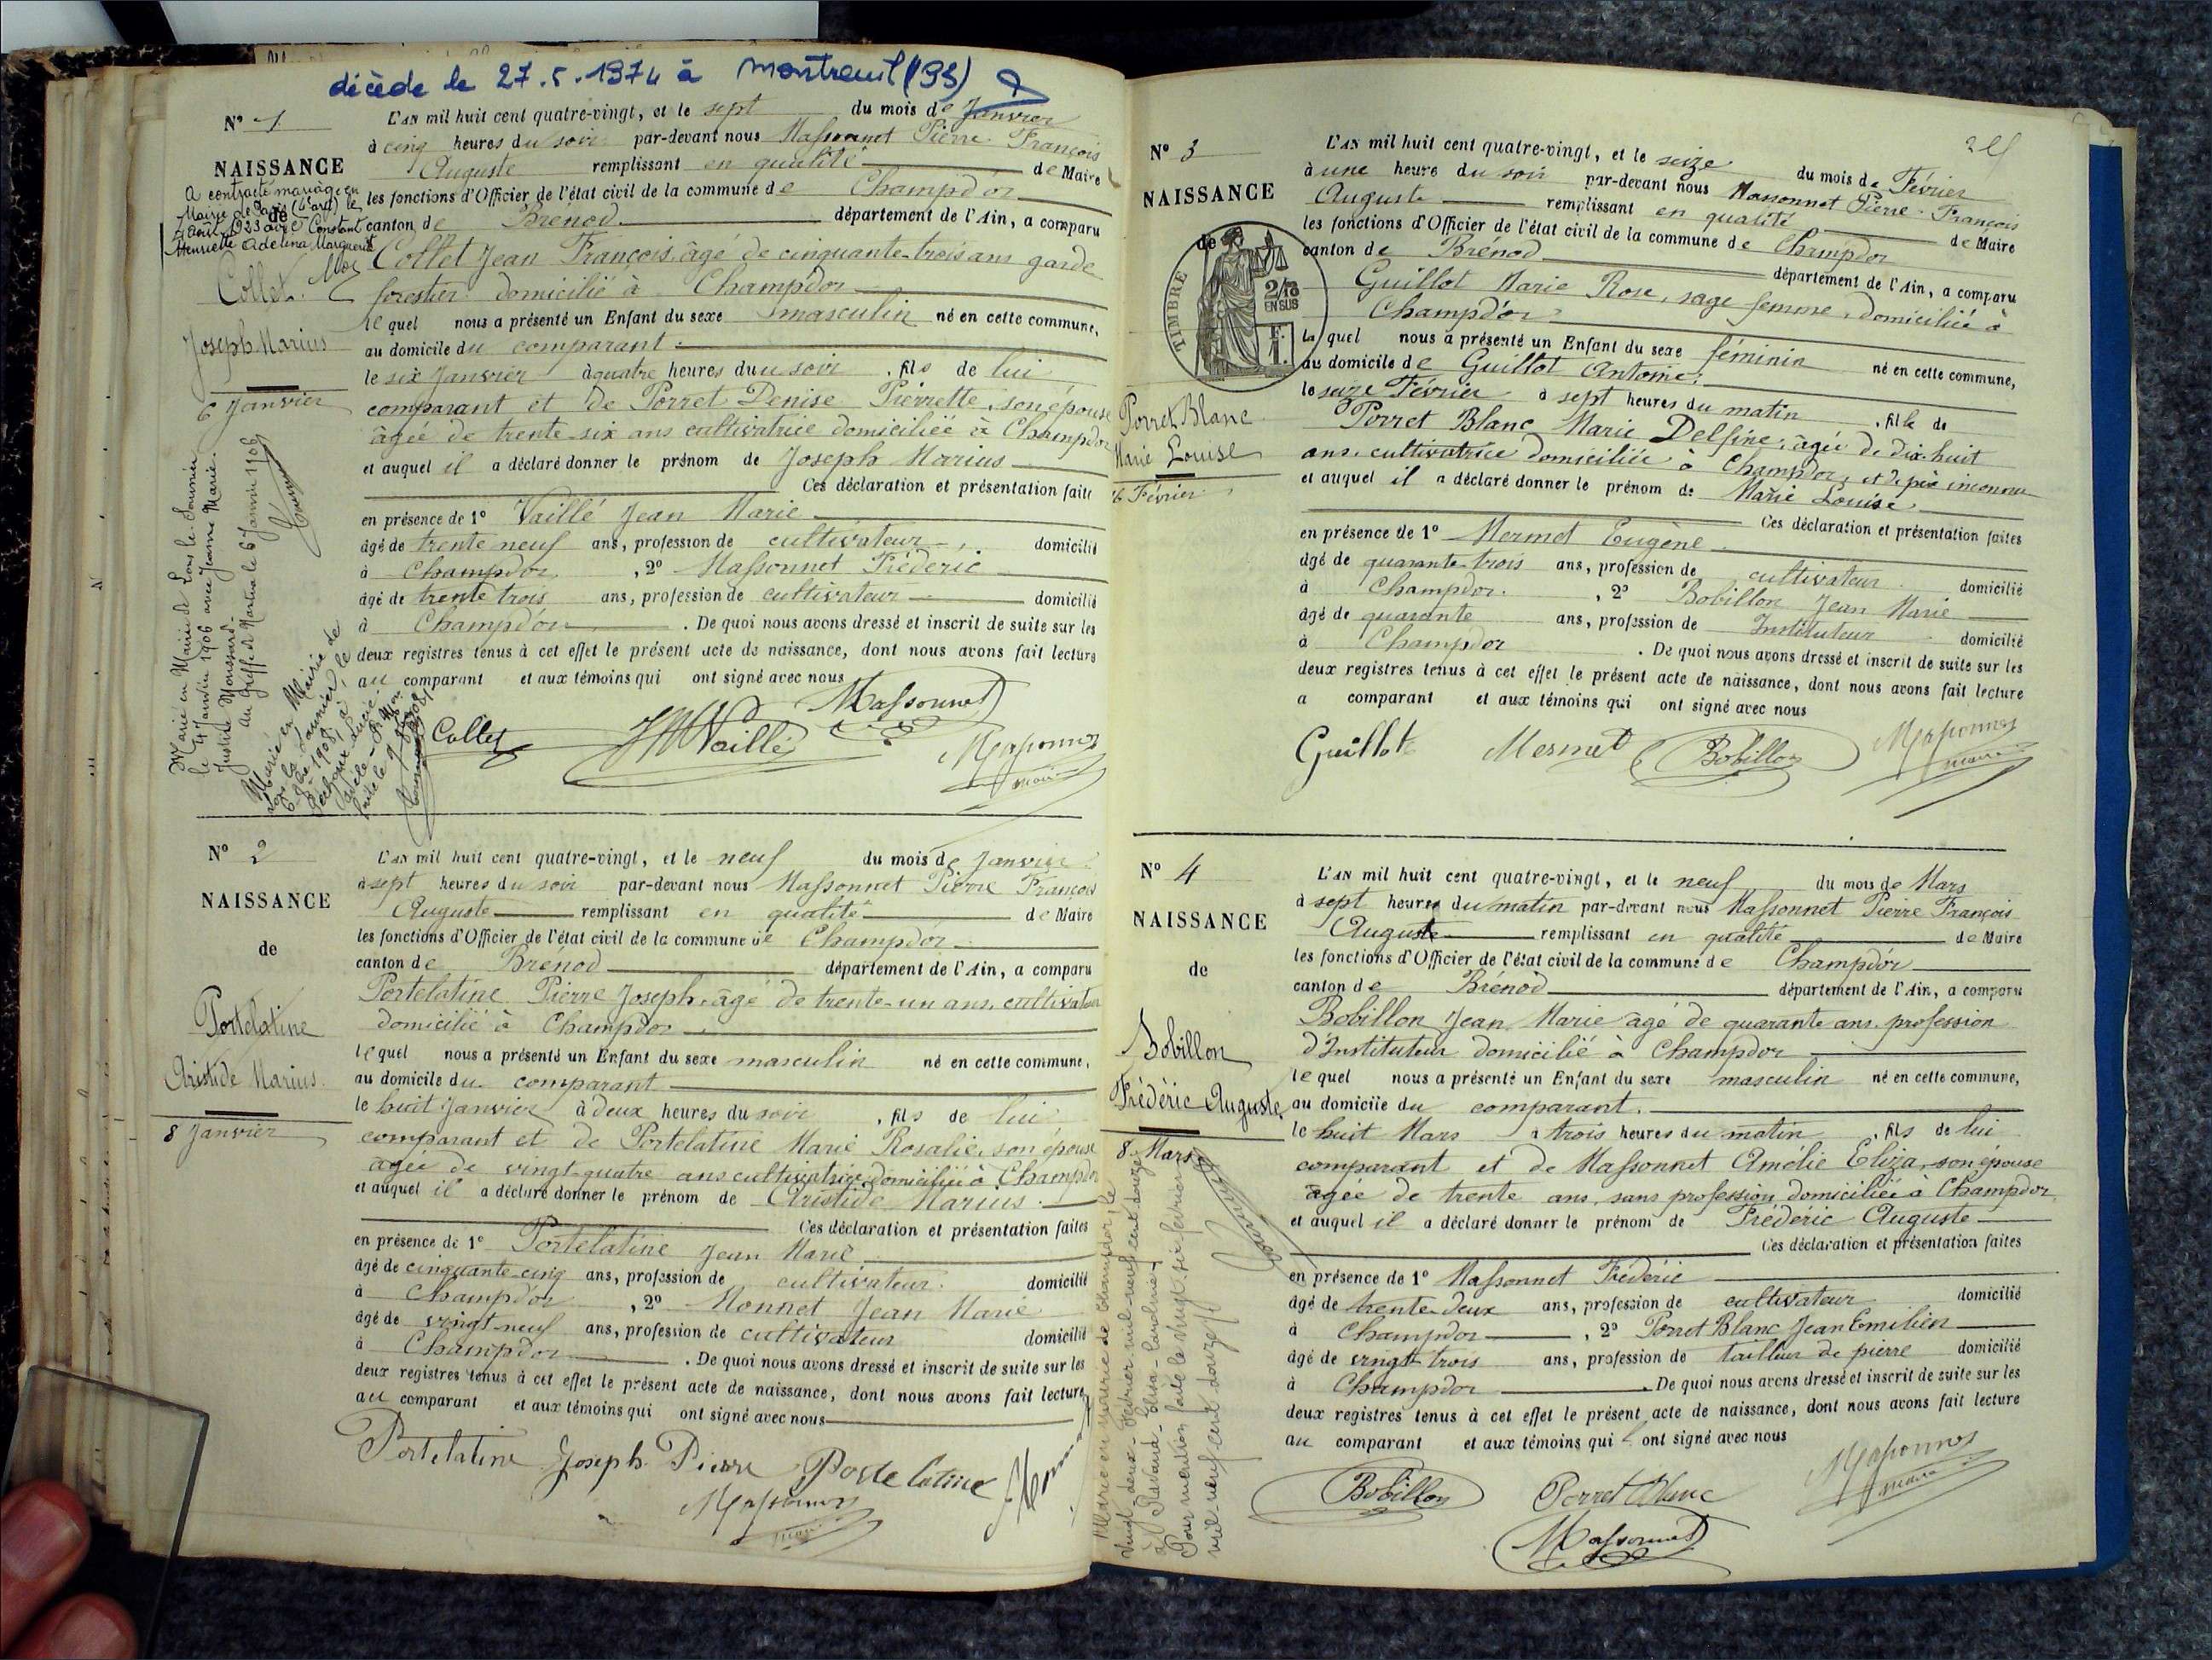 décède le 27.5.1974 à Montreuil (93)
N° 1
NAISSANCE
de
A contracté mariage en
Mairie de Paris (4e arrt) le
1923 avec Constant
Henriette Adelina Marguerite
Collet
Joseph Marius
6 Janvier
Marié en Mairie de Lons le Saunier
le 4 Janvier 1906 avec Jeanne Marie
Justine
au Greffe de Nantua le 6 Janvier 1906
L'AN mil huit cent quatre-vingt, et le sept du mois de Janvier
à cinq heures du soir par-devant nous Massonnet Pierre François
Auguste remplissant en qualité de Maire
les fonctions d'Officier de l'état civil de la commune de Champdor
canton de Brenod département de l'Ain, a comparu
Collet Jean François âgé de cinquante-trois ans garde
forestier domicilié à Champdor
lequel nous a présenté un Enfant du sexe masculin né en cette commune,
au domicile du comparant
le six Janvier à quatre heures du soir, fils de lui
comparant et de Porret Denise Pierrette, son épouse
âgée de trente-six ans cultivatrice domiciliée à Champdor
et auquel il a déclaré donner le prénom de Joseph Marius
Ces déclaration et présentation faites
en présence de 1° Vaillé Jean Marie
âgé de trente neuf ans, profession de cultivateur domicilié
à Champdor, 2° Massonnet Fréderic
âgé de trente trois ans, profession de cultivateur domicilié
à Champdor. De quoi nous avons dressé et inscrit de suite sur les
deux registres tenus à cet effet le présent acte de naissance, dont nous avons fait lecture
au comparant et aux témoins qui ont signé avec nous
Collet JM Vaillé Massonnet
Massonnet
maire
N° 2
NAISSANCE
de
Portelatine
Aristide Marius
8 Janvier
L'AN mil huit cent quatre-vingt, et le neuf du mois de Janvier
à sept heures du soir par-devant nous Massonnet Pierre François
Auguste remplissant en qualité de Maire
les fonctions d'Officier de l'état civil de la commune de Champdor
canton de Brénod département de l'Ain, a comparu
Portelatine Pierre Joseph, âgé de trente-un ans, cultivateur
domicilié à Champdor
lequel nous a présenté un Enfant du sexe masculin né en cette commune,
au domicile du comparant
le huit Janvier à deux heures du soir, fils de lui
comparant et de Portelatine Marie Rosalie, son épouse
âgée de vingt-quatre ans cultivatrice domiciliée à Champdor
et auquel il a déclaré donner le prénom de Aristide Marius
Ces déclaration et présentation faites
en présence de 1° Portelatine Jean Marie
âgé de cinquante-cinq ans, profession de cultivateur domicilié
à Champdor, 2° Monnet Jean Marie
âgé de vingt-neuf ans, profession de cultivateur domicilié
à Champdor. De quoi nous avons dressé et inscrit de suite sur les
deux registres tenus à cet effet le présent acte de naissance, dont nous avons fait lecture
au comparant et aux témoins qui ont signé avec nous
Portelatine Joseph Pierre Portelatine
Massonnet
maire
N° 3
NAISSANCE
de
TIMBRE
2/10
EN SUS
Porret Blanc
Marie Louise
16 Février
L'AN mil huit cent quatre-vingt, et le seize du mois de Février
à une heure du soir par-devant nous Massonnet Pierre François
Auguste remplissant en qualité de Maire
les fonctions d'Officier de l'état civil de la commune de Champdor
canton de Brénod département de l'Ain, a comparu
Guillot Marie Rose, sage femme, domiciliée à
Champdor
la quel nous a présenté un Enfant du sexe féminin né en cette commune,
au domicile de Guillot Antoine
le seize Février à sept heures du matin, fille de
Porret Blanc Marie Delfine, âgée de dix-huit
ans, cultivatrice domiciliée à Champdor, et de père inconnu
et auquel il a déclaré donner le prénom de Marie Louise
Ces déclaration et présentation faites
en présence de 1° Mermet Eugène
âgé de quarante-trois ans, profession de cultivateur domicilié
à Champdor, 2° Bobillon Jean Marie
âgé de quarante ans, profession de Instituteur domicilié
à Champdor. De quoi nous avons dressé et inscrit de suite sur les
deux registres tenus à cet effet le présent acte de naissance, dont nous avons fait lecture
a comparant et aux témoins qui ont signé avec nous
Guillot Mermet Bobillon Massonnet
maire
N° 4
NAISSANCE
de
Bobillon
Frédéric Auguste
8 Mars
Marié en mairie de Champdor, le
vingt deux Février mil neuf cent douze
à Elisa Caroline
Pour mention faite le vingt six février
mil neuf cent douze
L'AN mil huit cent quatre-vingt, et le neuf du mois de Mars
à sept heures du matin par-devant nous Massonnet Pierre François
Auguste remplissant en qualité de Maire
les fonctions d'Officier de l'état civil de la commune de Champdor
canton de Brénod département de l'Ain, a comparu
Bobillon Jean Marie âgé de quarante ans, profession
d'Instituteur domicilié à Champdor
lequel nous a présenté un Enfant du sexe masculin né en cette commune,
au domicile du comparant.
le huit Mars à trois heures du matin, fils de lui
comparant et de Massonnet Amélie Eliza, son épouse
âgée de trente ans, sans profession domiciliée à Champdor
et auquel il a déclaré donner le prénom de Frédéric Auguste
Ces déclaration et présentation faites
en présence de 1° Massonnet Fréderic
âgé de trente-deux ans, profession de cultivateur domicilié
à Champdor, 2° Porret Blanc Jean Emilien
âgé de vingt-trois ans, profession de tailleur de pierre domicilié
à Champdor. De quoi nous avons dressé et inscrit de suite sur les
deux registres tenus à cet effet le présent acte de naissance, dont nous avons fait lecture
au comparant et aux témoins qui ont signé avec nous
Bobillon Porret Blanc Massonnet
maire
Massonnet